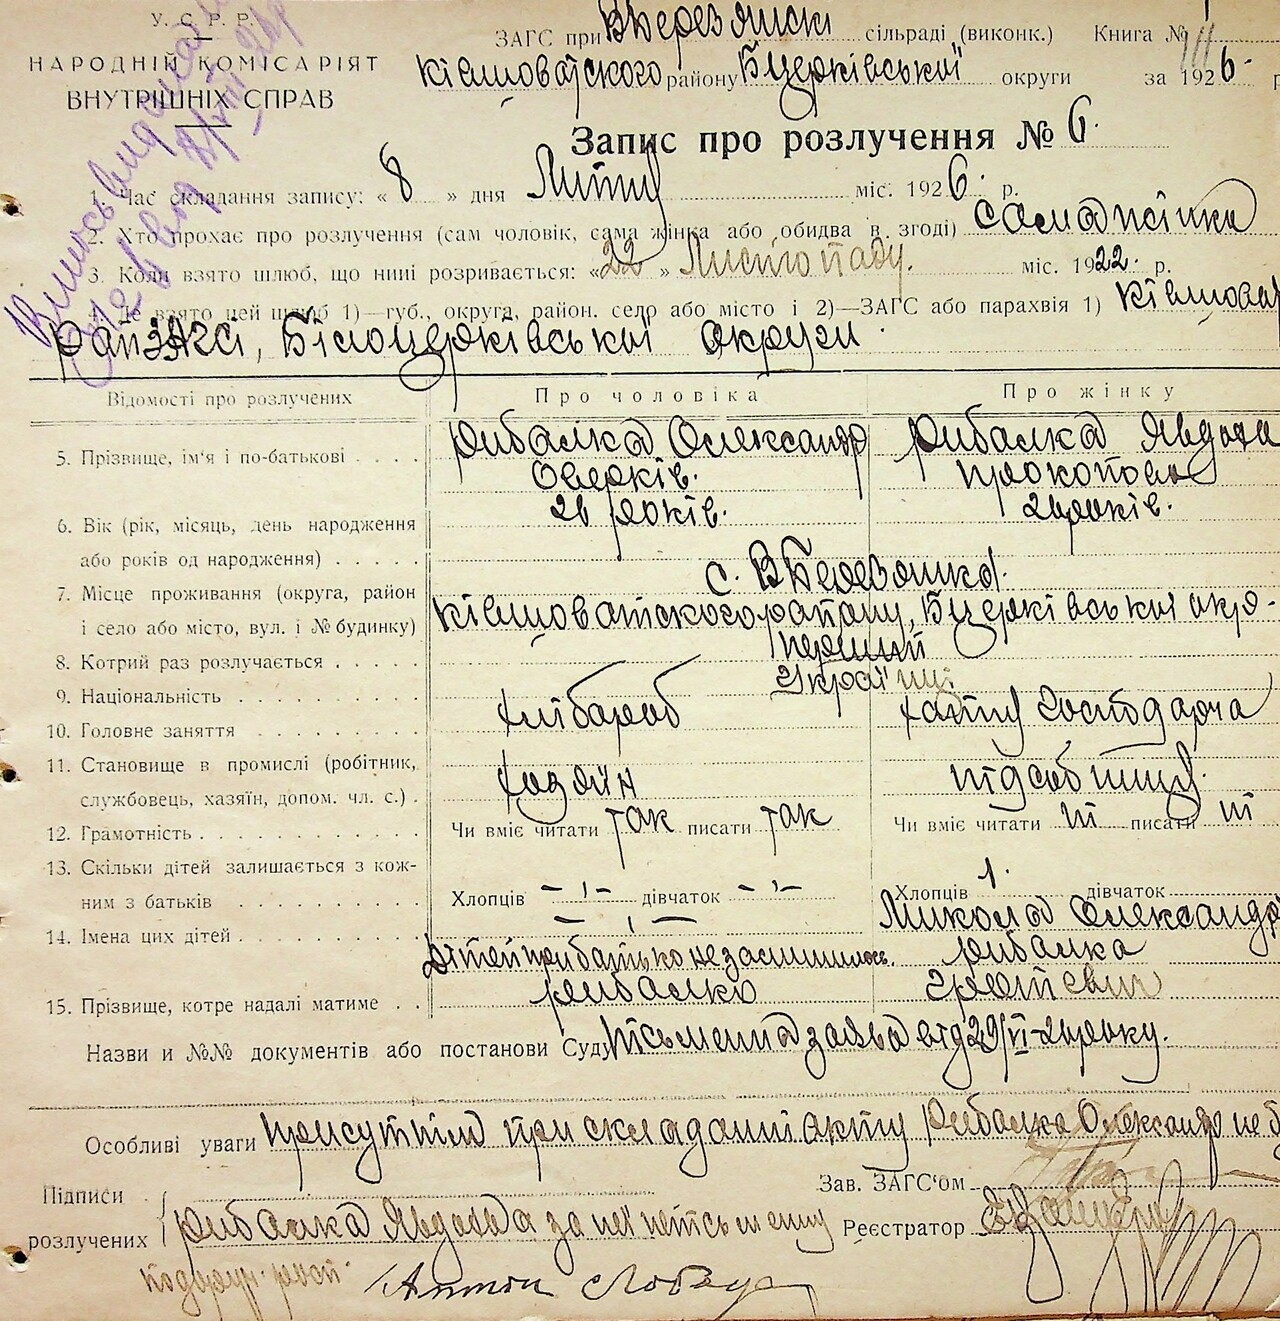 У. С. Р. Р.
НАРОДНІЙ КОМІСАРІЯТ
ВНУТРІШНІХ СПРАВ
ЗАГС при ВБерезянскі сільраді (виконк.) Книга № III
Ківшоватского району БЦерківської округи за 1926 р
Запис про розлучення № 6.
1. Час складання запису: « 8 » дня Липня міс. 1926. р.
2. Хто прохає про розлучення (сам чоловік, сама жінка або обидва в згоді) сама жінка
3. Коли взято шлюб, що нині розривається: «22» Листопаду. міс. 1922. р.
4. Де взято цей шлюб 1)—губ., округа, район. село або місто і 2)—ЗАГС або парахвія 1) Ківшоват
Рай ЗАГСі, Білоцерківської округи.
Відомості про розлучених
Про чоловіка
Про жінку
5. Прізвище, ім'я і по-батькові . . . .
Рибалка Олександр
Оверків.
Рибалка Явдоха
Прокопова
6. Вік (рік, місяць, день народження
або років од народження) . . . . .
26 років.
24 років.
7. Місце проживання (округа, район
і село або місто, вул. і № будинку)
с. ВБерезянка.
Ківшоватского району, БЦерківської окр.
8. Котрий раз розлучається . . . . .
перший
9. Національність . . . . . . . .
Україн.
10. Головне заняття . . . . . . .
хлібороб
хатня господарча
11. Становище в промислі (робітник,
службовець, хазяїн, допом. чл. с.) .
хазяїн
підсобниця.
12. Грамотність . . . . . . . . . . .
Чи вміє читати так писати так
Чи вміє читати ні писати ні
13. Скільки дітей залишається з кож-
ним з батьків . . . . . . . .
Хлопців – ı – дівчаток – ı –
Хлопців 1. дівчаток
14. Імена цих дітей . . . . . . . . .
– ı –
Дітей при батько не залишилось.
Микола Олександр
Рибалка
15. Прізвище, котре надалі матиме . .
Рибалко
Назви и №№ документів або постанови Суду Пісьменна заява від 29/VI-26 року.
Особливі уваги Присутнім при складанні акту Рибалка Олександр не б
Зав. ЗАГС'ом
Підписи
розлучених
Рибалка Явдоха а за неї
Реєстратор
Антон Лобода